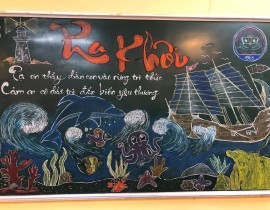 Ra Khơi
Tạ ơn thầy, dẫn con vào rừng tri thức
Cảm ơn cô dắt trò đến biển yêu thương